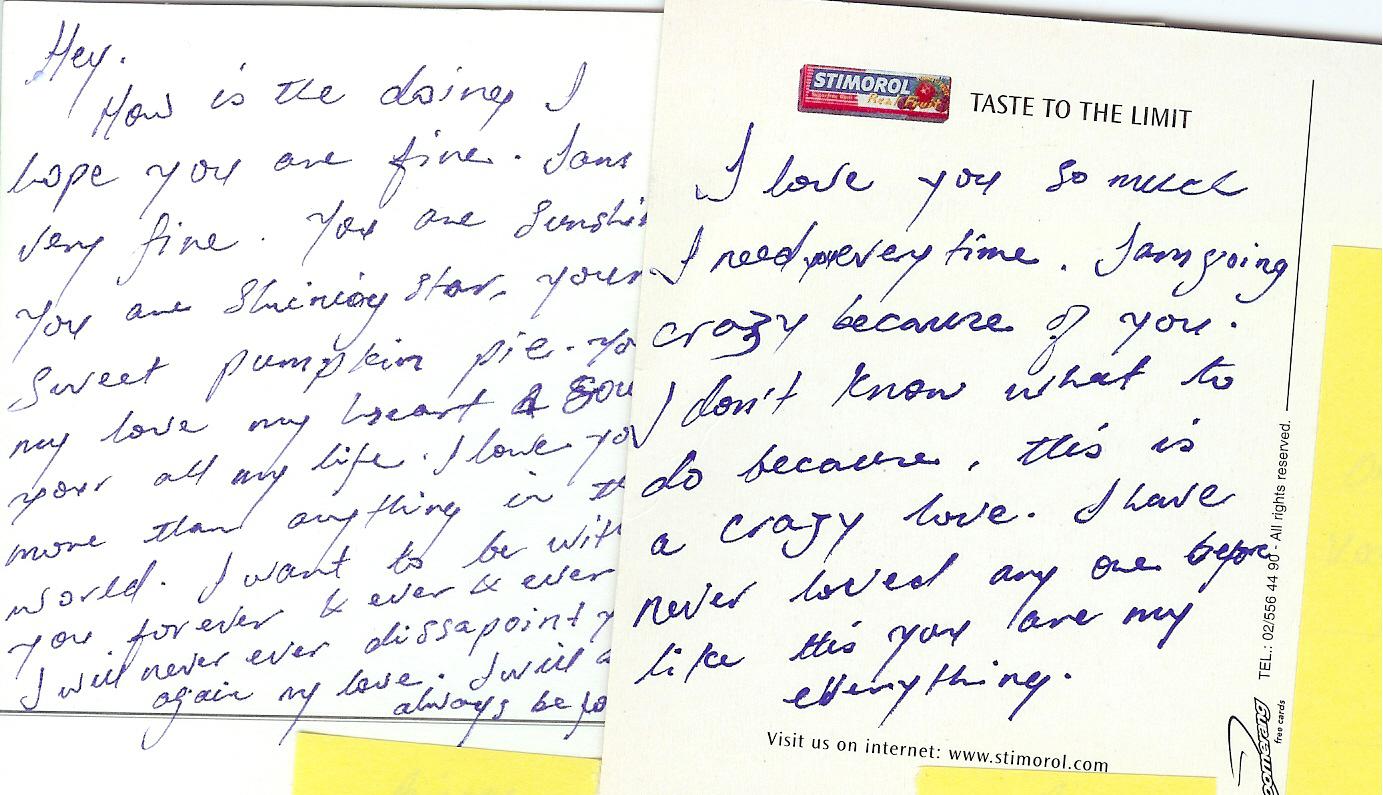 Hey.
How is the doing I
hope you are fine. I am
very fine. You are Sunshi
you are Shining Star, your
Sweet pumpkin pie. Yo
my love my heart & Sou
your all my life. I love yo
more than anything in th
world. I want to be wit
you forever & ever & ever
I will never ever dissapoint y
again my love. I will a
always be fo
STIMOROL
TASTE TO THE LIMIT
I love you so much
I need every time. I am going
crazy because of you.
I don't know what to
do because, this is
a crazy love. I have
never loved any one before
like this you are my
everything.
Visit us on internet: www.stimorol.com
TEL.: 02/556 44 90 - All rights reserved.
oomerang
free cards